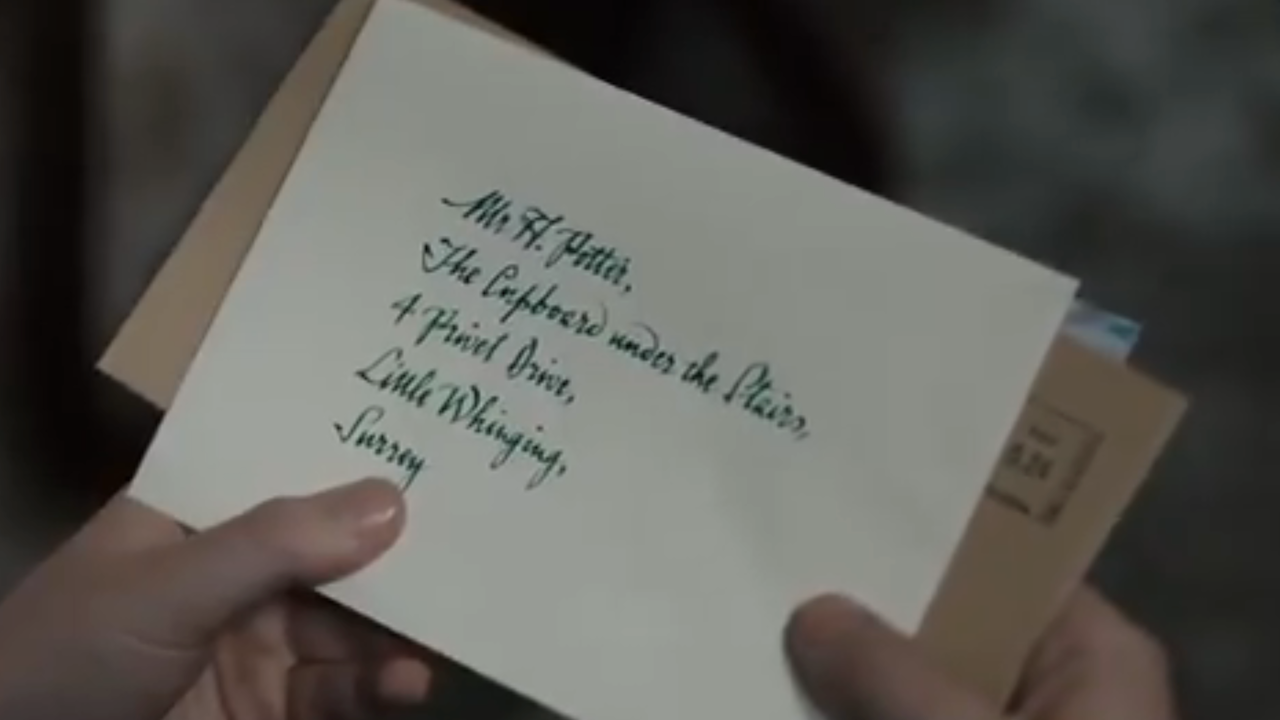 Mr H. Potter,
The Cupboard under the Stairs,
4 Privet Drive,
Little Whinging,
Surrey